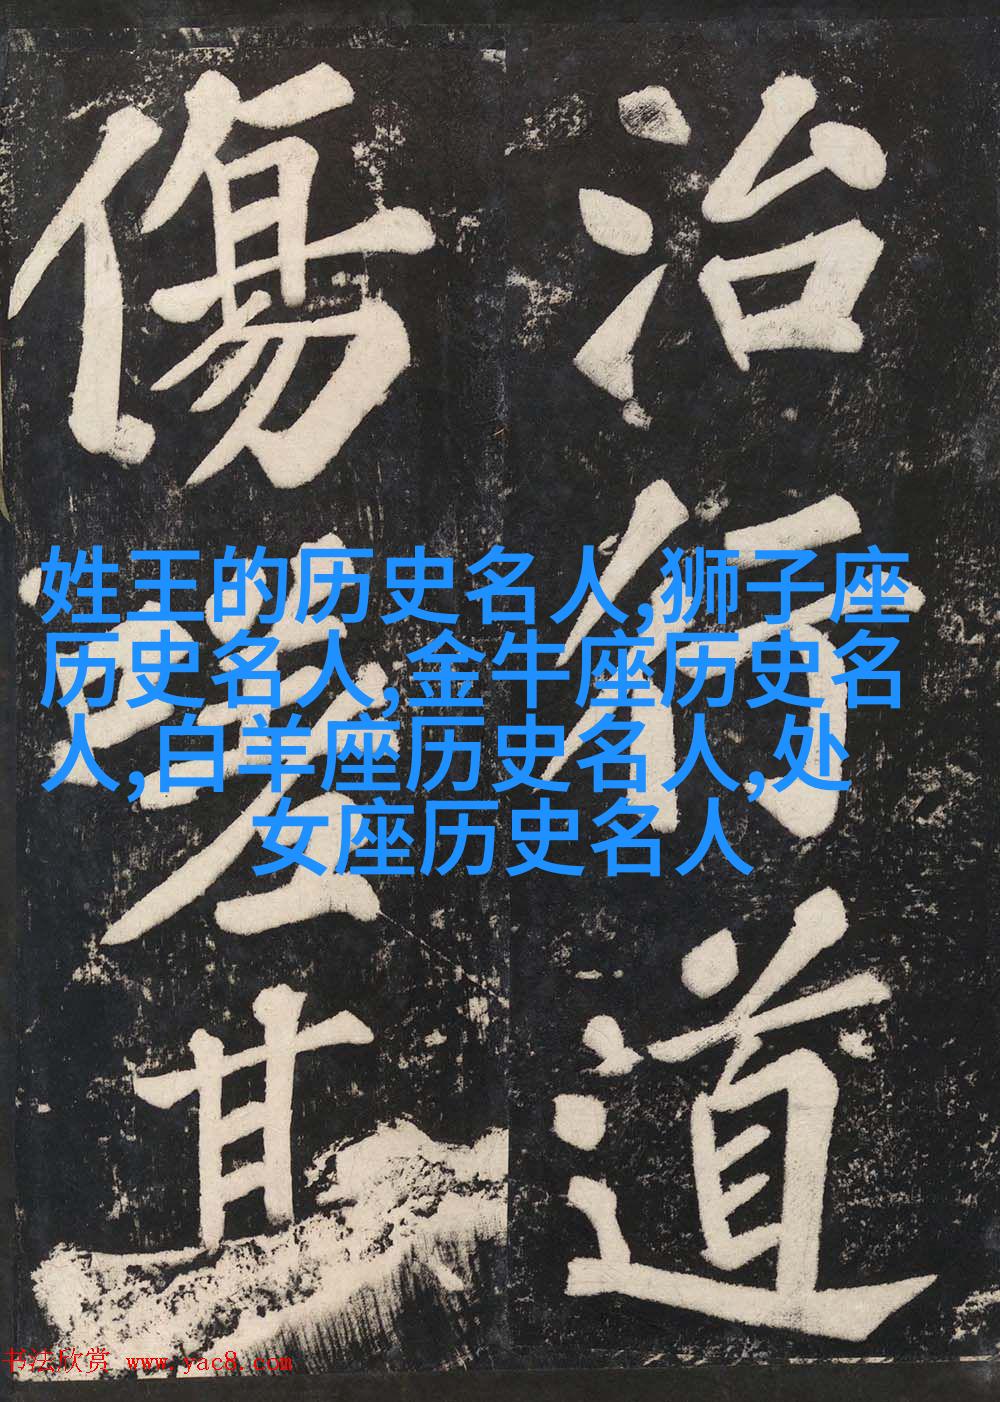 治行道
傷嗟
姓王的历史名人,狮子座
历史名人,金牛座历史名
人,白羊座历史名人,处
女座历史名人
书法欣赏 www.yac8.com